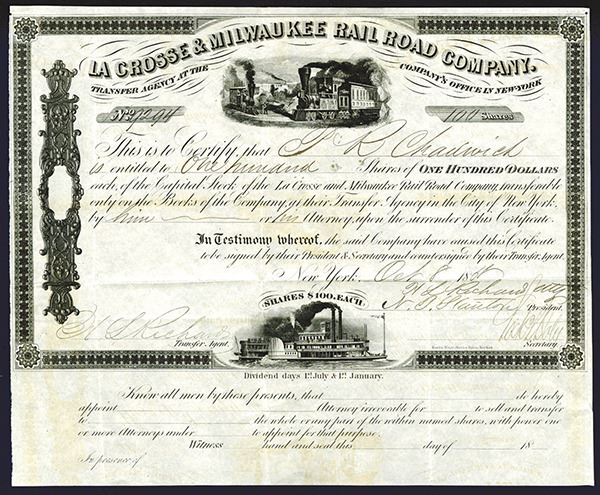 LA CROSSE & MILWAUKEE RAIL ROAD COMPANY.
TRANSFER AGENCY AT THE COMPANY'S OFFICE IN NEW-YORK
No. 7294
100 Shares
This is to Certify, that Chadwick
is entitled to One hundred Shares of ONE HUNDRED DOLLARS
each, of the Capital Stock of the La Crosse and Milwaukee Rail Road Company, transferable
only on the Books of the Company, at their Transfer Agency in the City of New York,
by him or his Attorney, upon the surrender of this Certificate.
In Testimony whereof, the said Company have caused this Certificate
to be signed by their President & Secretary and countersigned by their Transfer Agent.
New York. Oct 18
SHARES $100. EACH.
President.
Transfer Agent.
Secretary.
Dividend days 1st July & 1st January.
Know all men by these presents, that do hereby
appoint Attorney irrevocable for to sell and transfer
to the whole or any part of the within named shares, with power one
or more Attorneys under to appoint for that purpose.
Witness hand and seal this day of 18
In presence of